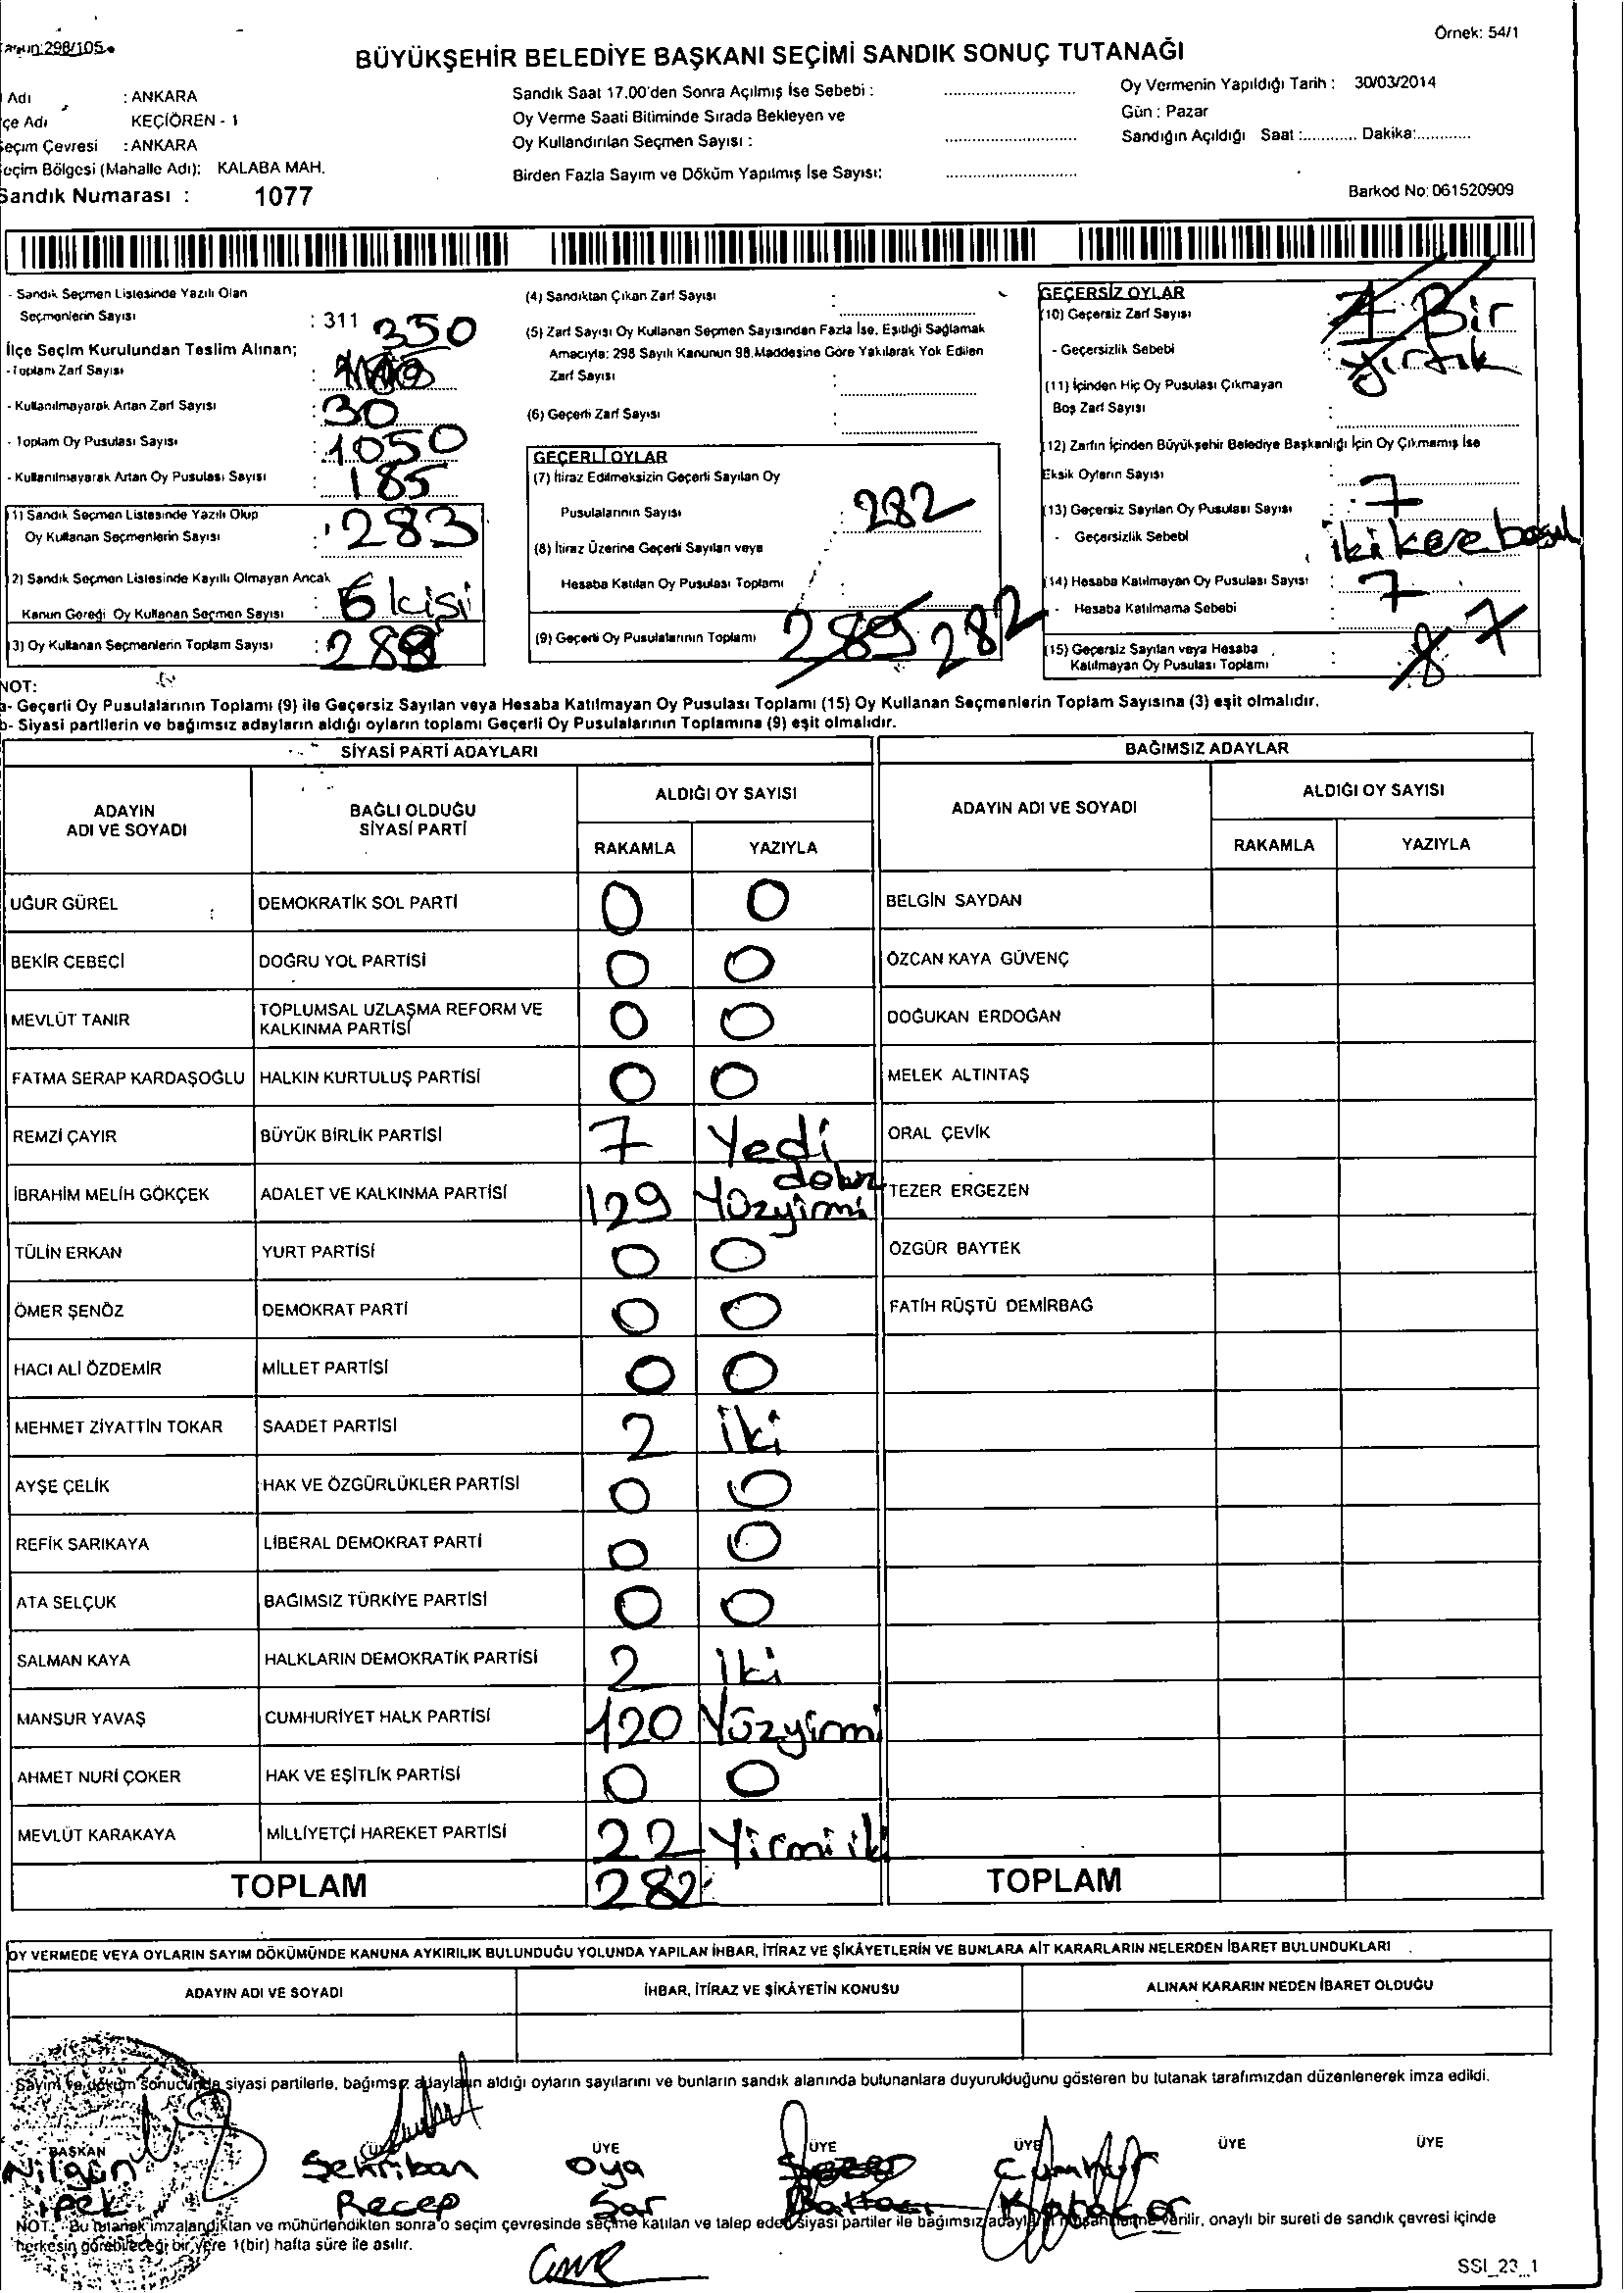 298/105
Örnek: 54/1
BÜYÜKŞEHİR BELEDİYE BAŞKANI SEÇİMİ SANDIK SONUÇ TUTANAĞI
Adı : ANKARA
çe Adı KEÇİÖREN - 1
eçim Çevresi : ANKARA
eçim Bölgesi (Mahalle Adı); KALABA MAH.
Sandık Numarası : 1077
Sandık Saat 17.00'den Sonra Açılmış İse Sebebi :
Oy Verme Saati Bitiminde Sırada Bekleyen ve
Oy Kullandırılan Seçmen Sayısı :
Birden Fazla Sayım ve Döküm Yapılmış İse Sayısı:
Oy Vermenin Yapıldığı Tarih : 30/03/2014
Gün : Pazar
Sandığın Açıldığı Saat :........... Dakika:...........
Barkod No: 061520909
- Sandık Seçmen Listesinde Yazılı Olan
Seçmenlerin Sayısı : 311
350
İlçe Seçim Kurulundan Teslim Alınan;
- Toplam Zarf Sayısı :
- Kullanılmayarak Artan Zarf Sayısı : 30
- Toplam Oy Pusulası Sayısı : 1050
- Kullanılmayarak Artan Oy Pusulası Sayısı : 185
1) Sandık Seçmen Listesinde Yazılı Olup
Oy Kullanan Seçmenlerin Sayısı : 283
2) Sandık Seçmen Listesinde Kayıtlı Olmayan Ancak
Kanun Gereği Oy Kullanan Seçmen Sayısı : 6 kişi
3) Oy Kullanan Seçmenlerin Toplam Sayısı : 289
(4) Sandıktan Çıkan Zarf Sayısı :
(5) Zarf Sayısı Oy Kullanan Seçmen Sayısından Fazla İse, Eşitliği Sağlamak
Amacıyla: 298 Sayılı Kanunun 98.Maddesine Göre Yakılarak Yok Edilen
Zarf Sayısı :
(6) Geçerli Zarf Sayısı :
GEÇERLİ OYLAR
(7) İtiraz Edilmeksizin Geçerli Sayılan Oy
Pusulalarının Sayısı : 282
(8) İtiraz Üzerine Geçerli Sayılan veya
Hesaba Katılan Oy Pusulası Toplamı :
(9) Geçerli Oy Pusulalarının Toplamı 289 282
GEÇERSİZ OYLAR
(10) Geçersiz Zarf Sayısı 1 Bir
- Geçersizlik Sebebi yırtık
(11) İçinden Hiç Oy Pusulası Çıkmayan
Boş Zarf Sayısı :
(12) Zarfın İçinden Büyükşehir Belediye Başkanlığı İçin Oy Çıkmamış İse
Eksik Oyların Sayısı :
(13) Geçersiz Sayılan Oy Pusulası Sayısı : 7
- Geçersizlik Sebebi : iki kere
(14) Hesaba Katılmayan Oy Pusulası Sayısı : 7
- Hesaba Katılmama Sebebi :
(15) Geçersiz Sayılan veya Hesaba
Katılmayan Oy Pusulası Toplamı : 8 7
NOT:
a- Geçerli Oy Pusulalarının Toplamı (9) ile Geçersiz Sayılan veya Hesaba Katılmayan Oy Pusulası Toplamı (15) Oy Kullanan Seçmenlerin Toplam Sayısına (3) eşit olmalıdır.
b- Siyasi partilerin ve bağımsız adayların aldığı oyların toplamı Geçerli Oy Pusulalarının Toplamına (9) eşit olmalıdır.
SİYASİ PARTİ ADAYLARI BAĞIMSIZ ADAYLAR
ADAYIN ADI VE SOYADI BAĞLI OLDUĞU SİYASİ PARTİ ALDIĞI OY SAYISI ADAYIN ADI VE SOYADI ALDIĞI OY SAYISI
RAKAMLA YAZIYLA RAKAMLA YAZIYLA
UĞUR GÜREL DEMOKRATİK SOL PARTİ 0 0 BELGİN SAYDAN
BEKİR CEBECİ DOĞRU YOL PARTİSİ 0 0 ÖZCAN KAYA GÜVENÇ
MEVLÜT TANIR TOPLUMSAL UZLAŞMA REFORM VE KALKINMA PARTİSİ 0 0 DOĞUKAN ERDOĞAN
FATMA SERAP KARDAŞOĞLU HALKIN KURTULUŞ PARTİSİ 0 0 MELEK ALTINTAŞ
REMZİ ÇAYIR BÜYÜK BİRLİK PARTİSİ 7 Yedi ORAL ÇEVİK
İBRAHİM MELİH GÖKÇEK ADALET VE KALKINMA PARTİSİ 129 Yüzyirmi dokuz TEZER ERGEZEN
TÜLİN ERKAN YURT PARTİSİ 0 0 ÖZGÜR BAYTEK
ÖMER ŞENÖZ DEMOKRAT PARTİ 0 0 FATİH RÜŞTÜ DEMİRBAĞ
HACI ALİ ÖZDEMİR MİLLET PARTİSİ 0 0
MEHMET ZİYATTİN TOKAR SAADET PARTİSİ 2 İki
AYŞE ÇELİK HAK VE ÖZGÜRLÜKLER PARTİSİ 0 0
REFİK SARIKAYA LİBERAL DEMOKRAT PARTİ 0 0
ATA SELÇUK BAĞIMSIZ TÜRKİYE PARTİSİ 0 0
SALMAN KAYA HALKLARIN DEMOKRATİK PARTİSİ 2 İki
MANSUR YAVAŞ CUMHURİYET HALK PARTİSİ 120 Yüzyirmi
AHMET NURİ ÇOKER HAK VE EŞİTLİK PARTİSİ 0 0
MEVLÜT KARAKAYA MİLLİYETÇİ HAREKET PARTİSİ 22 Yirmi iki
TOPLAM 282 TOPLAM
OY VERMEDE VEYA OYLARIN SAYIM DÖKÜMÜNDE KANUNA AYKIRILIK BULUNDUĞU YOLUNDA YAPILAN İHBAR, İTİRAZ VE ŞİKÂYETLERİN VE BUNLARA AİT KARARLARIN NELERDEN İBARET BULUNDUKLARI
ADAYIN ADI VE SOYADI İHBAR, İTİRAZ VE ŞİKÂYETİN KONUSU ALINAN KARARIN NEDEN İBARET OLDUĞU
Sayım ve döküm sonucunda siyasi partilerle, bağımsız adayların aldığı oyların sayılarını ve bunların sandık alanında bulunanlara duyurulduğunu gösteren bu tutanak tarafımızdan düzenlenerek imza edildi.
BAŞKAN ÜYE ÜYE ÜYE ÜYE ÜYE
Nilgün Şehriban Oya Sezer Cumhur
İpek Recep Sar
NOT: Bu tutanak imzalandıktan ve mühürlendikten sonra o seçim çevresinde seçime katılan ve talep eden siyasi partiler ile bağımsız verilir, onaylı bir sureti de sandık çevresi içinde
herkesin görebileceği bir yere 1(bir) hafta süre ile asılır.
SSI_23_1